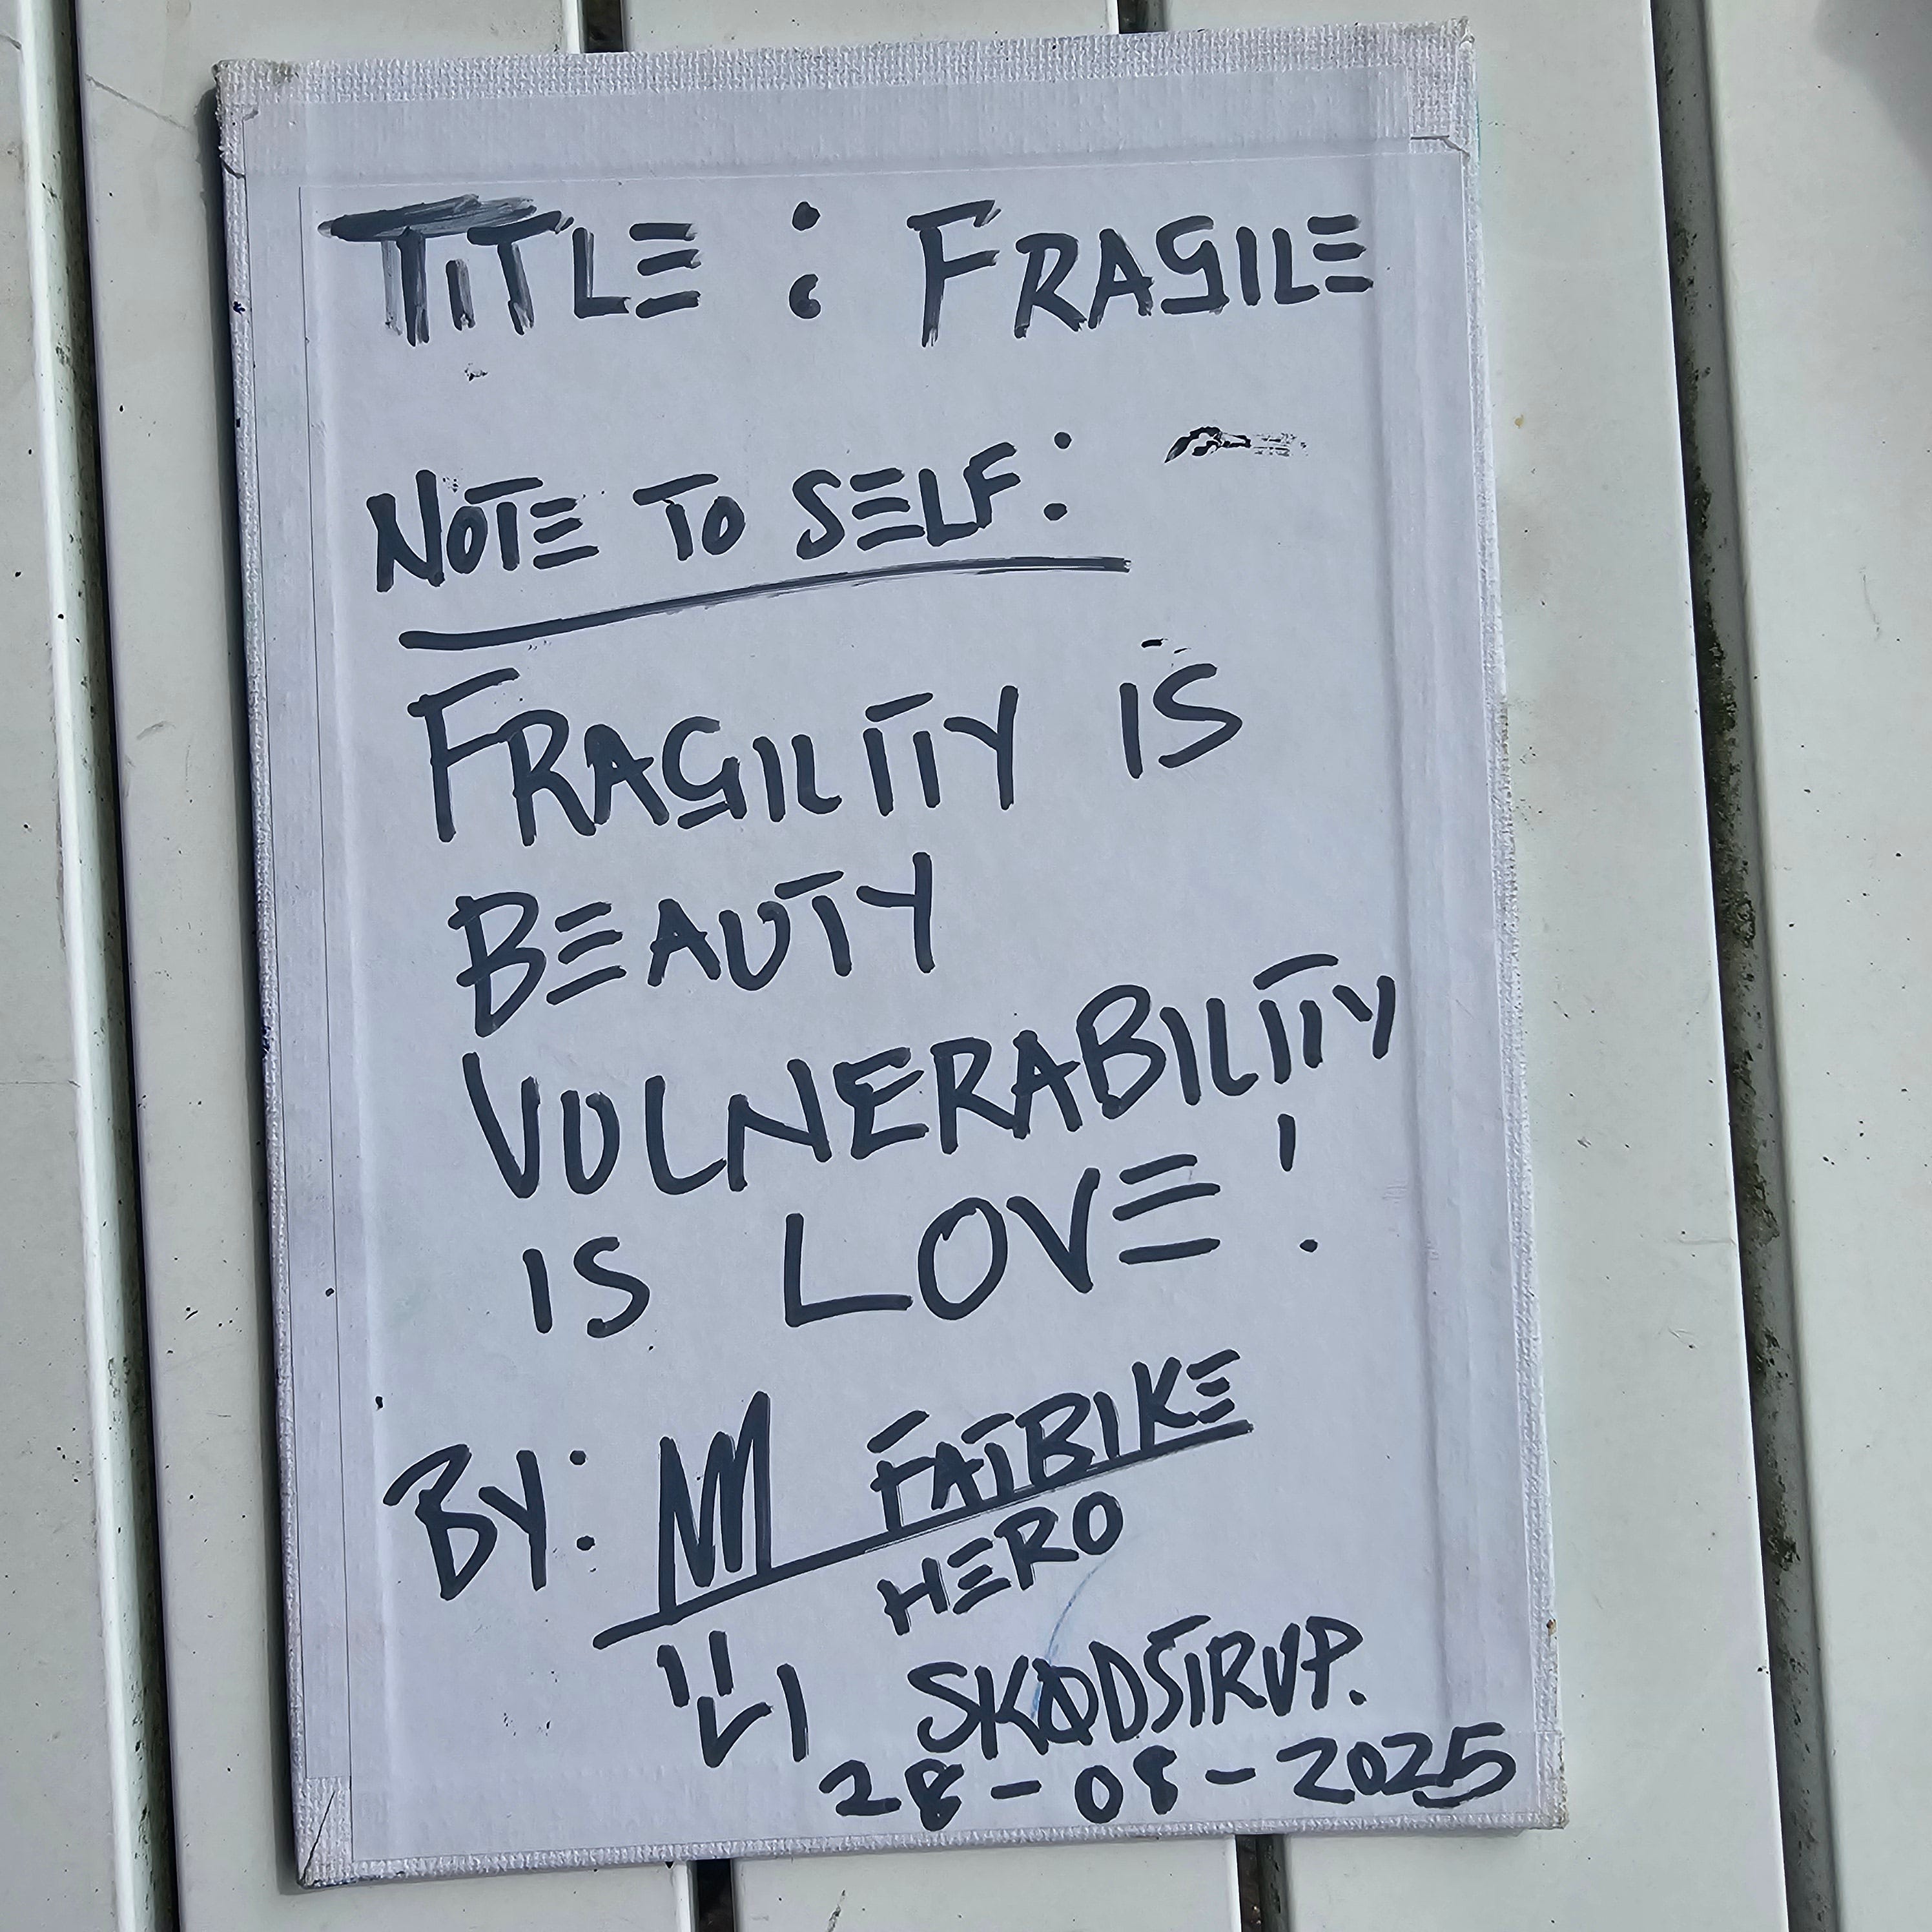 TITLE : FRAGILE
NOTE TO SELF:
FRAGILITY IS
BEAUTY
VULNERABILITY
IS LOVE!
BY: M FATBIKE
HERO
SKØDSTRUP.
28-08-2025